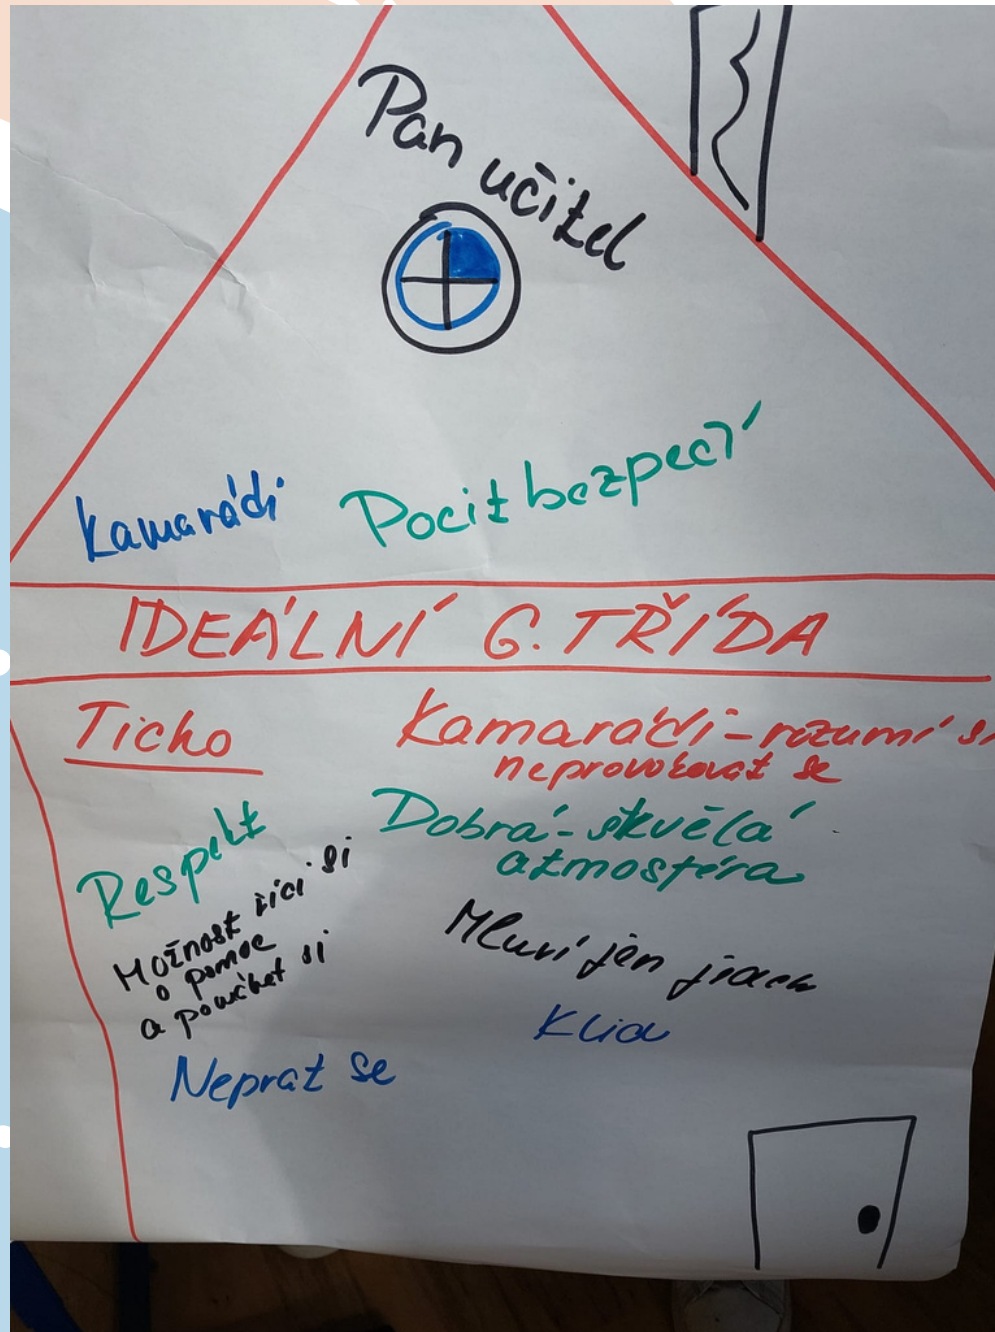 Pan učitel
Kamarádi
Pocit bezpečí
IDEÁLNÍ 6. TŘÍDA
Ticho
Kamarádi - rozumí si
neprovokovat se
Respekt
Dobrá - skvělá
atmosféra
Možnost říci si
o pomoc
a pomáhat si
Mluví jen
Klid
Neprat se